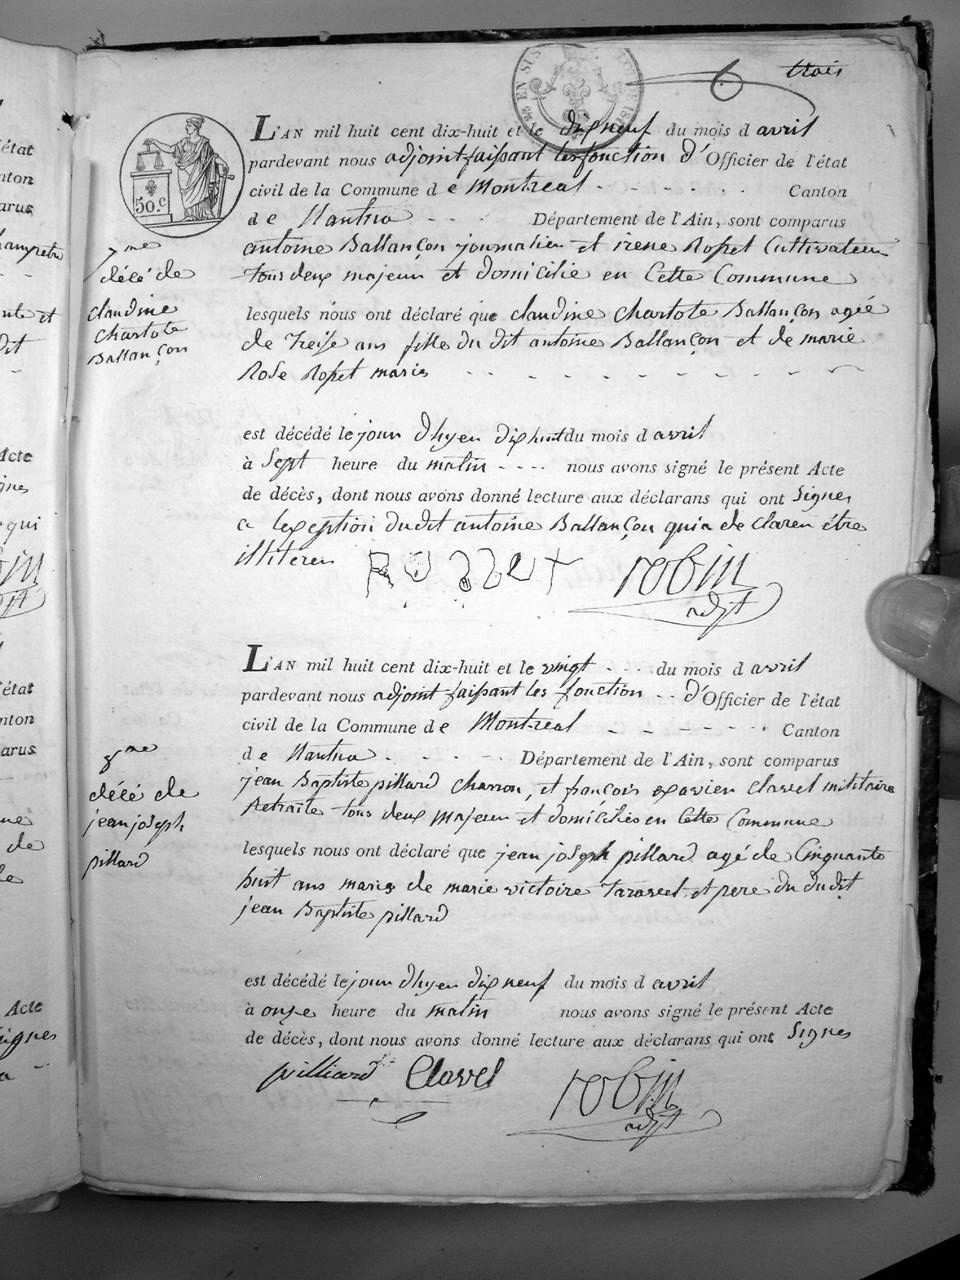 trois
EN SUS
50.c
L'AN mil huit cent dix-huit et le dix neuf du mois d avril
pardevant nous adjoint faissant les fonction d'Officier de l'état
civil de la Commune de Montreal Canton
de Nantua Département de l'Ain, sont comparus
antoine Ballançon journalier et irene Rosset Cultivateur
tous deux majeur et domicilié en Cette Commune
lesquels nous ont déclaré que claudine charlote Ballançon agée
de treise ans fille du dit antoine Ballançon et de marie
Rose Rosset mariés
est décédé le jour d'hyer dix huit du mois d avril
à Sept heure du matin nous avons signé le présent Acte
de décès, dont nous avons donné lecture aux déclarans qui ont Signes
a lexseption du dit antoine Ballançon qui a de claren être
illiteren
7me
décé de
claudine
charlote
Ballançon
ROSSET robin
adjt
L'AN mil huit cent dix-huit et le vingt du mois d avril
pardevant nous adjoint faissant les fonction d'Officier de l'état
civil de la Commune de Montreal Canton
de Nantua Département de l'Ain, sont comparus
jean Baptiste pillard charron, et françois exavier clavel militaire
Retraité tous deux majeur et domiciliés en Cette Commune
lesquels nous ont déclaré que jean joseph pillard agé de Cinquante
huit ans mariés de marie victoire et pere du du dit
jean Baptiste pillard
est décédé le jour d'hyer dix neuf du mois d avril
à onze heure du matin nous avons signé le présent Acte
de décès, dont nous avons donné lecture aux déclarans qui ont Signes
8me
décé de
jean joseph
pillard
pilliard Clavel robin
adjt